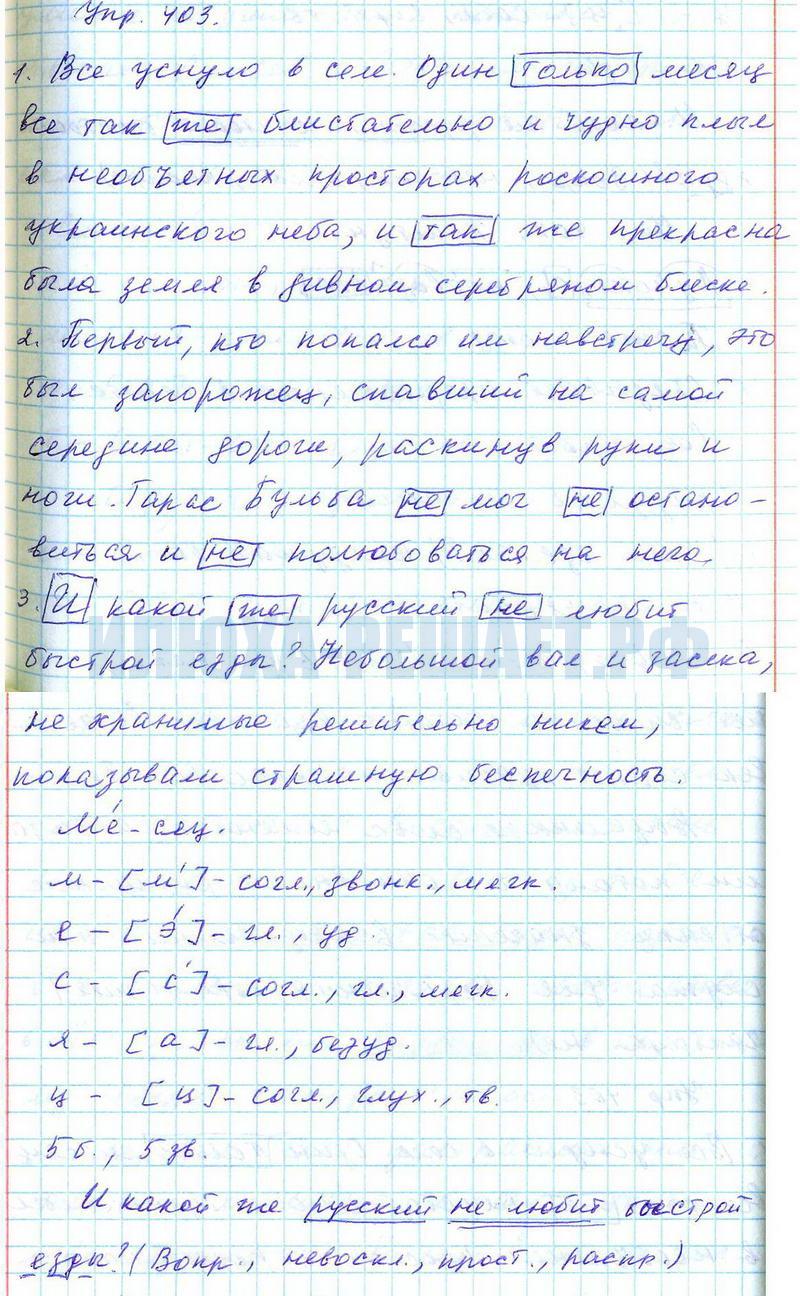 Упр. 403.
1. Все уснуло в селе. Один только месяц
все так же блистательно и чудно плыл
в необъятных просторах роскошного
украинского неба, и так же прекрасна
была земля в дивном серебряном блеске.
2. Первый, кто попался им навстречу, это
был запорожец, спавший на самой
середине дороги, раскинув руки и
ноги. Тарас Бульба не мог не остано-
виться и не полюбоваться на него.
3. И какой же русский не любит
ИЛЮХА-РЕШАЕТ.РФ
быстрой езды? Небольшой вал и засека,
не хранимые решительно никем,
показывали страшную беспечность.
Ме́-сяц.
м - [м'] - согл., звонк., мягк.
е - [э́] - гл., уд.
с - [с'] - согл., гл., мягк.
я - [а] - гл., безуд.
ц - [ц] - согл., глух., тв.
5 б., 5 зв.
И какой же русский не любит быстрой
езды? (Вопр., невоскл., прост., распр.)